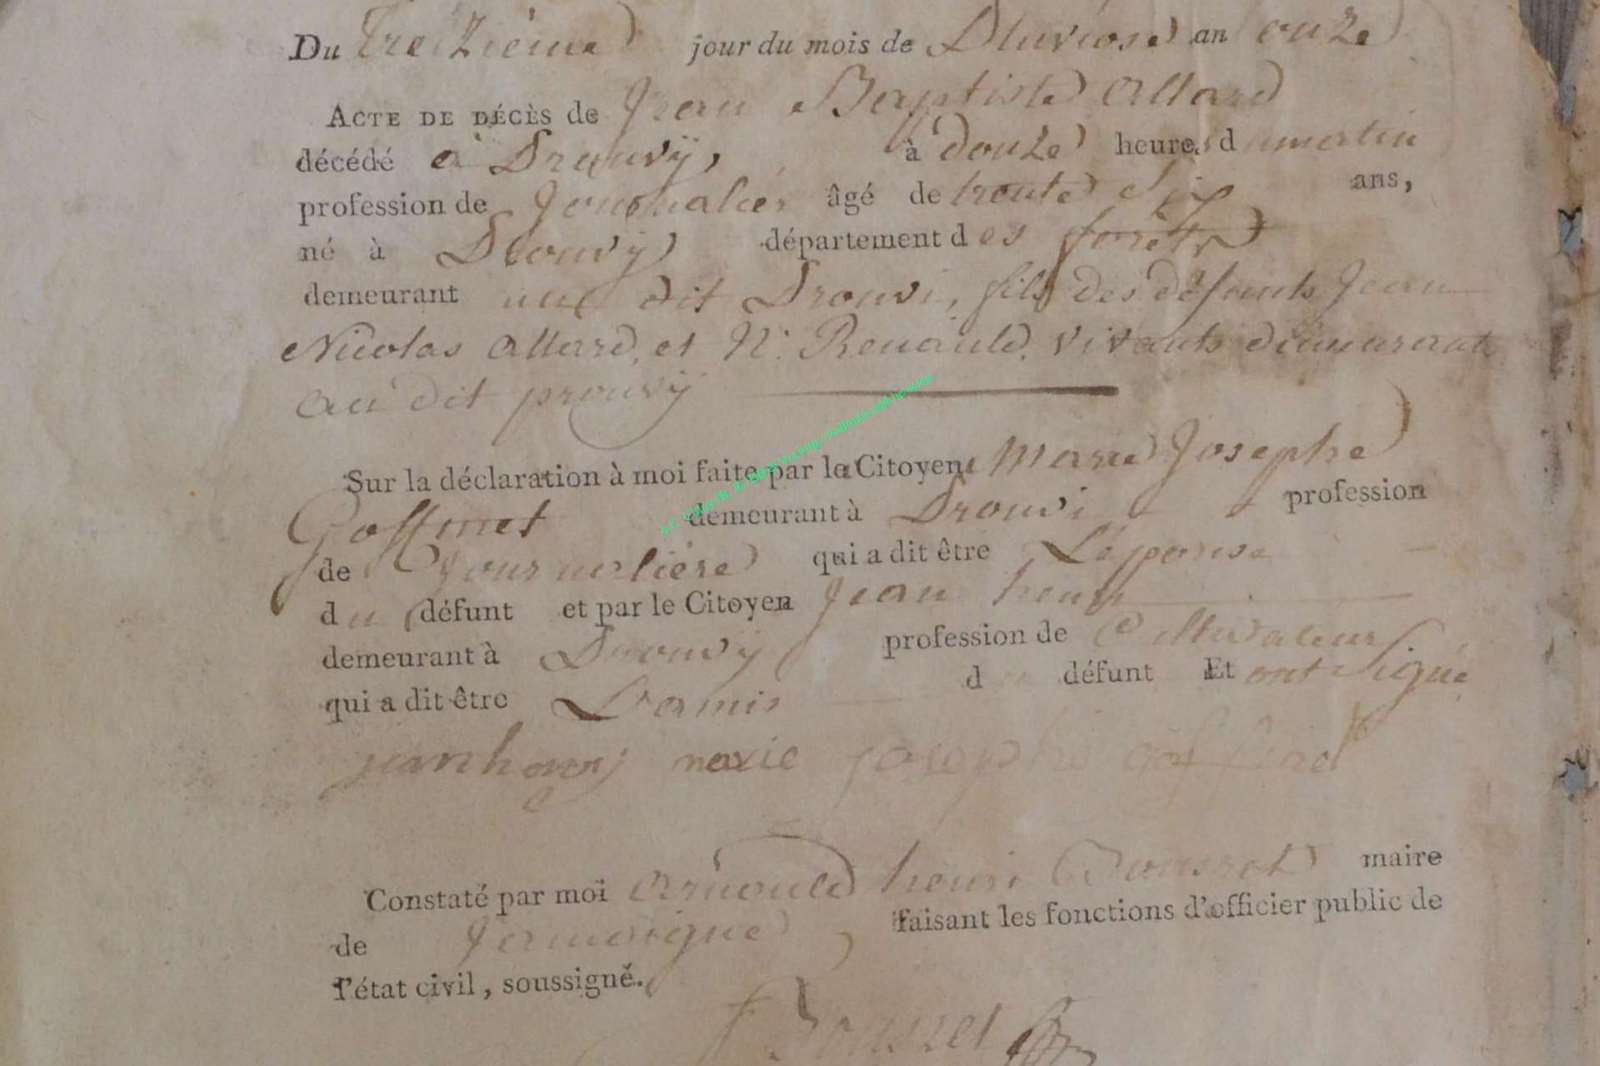 Du treizième jour du mois de Pluviose an onze
ACTE DE DÉCÈS de Jean Baptiste Allard
décédé à Prouvÿ, à douze heures du matin
profession de Journalier âgé de trente Six ans,
né à Prouvÿ département des forêts
demeurant au dit Prouvi, fils des défunts Jean
Nicolas Allard, et N. Renauld, vivants demeurant
au dit prouvÿ
Sur la déclaration à moi faite par la Citoyene Marie Josephe
Goffinet demeurant à Prouvi profession
de Journalière qui a dit être L'épouse
du défunt et par le Citoyen Jean henry
demeurant à Prouvÿ profession de Cultivateur
qui a dit être L'amis d défunt Et ont Signé
jean henry marie josephe
Constaté par moi Arnould henri maire
de Jamoigne, faisant les fonctions d'officier public de
l'état civil, soussigné.